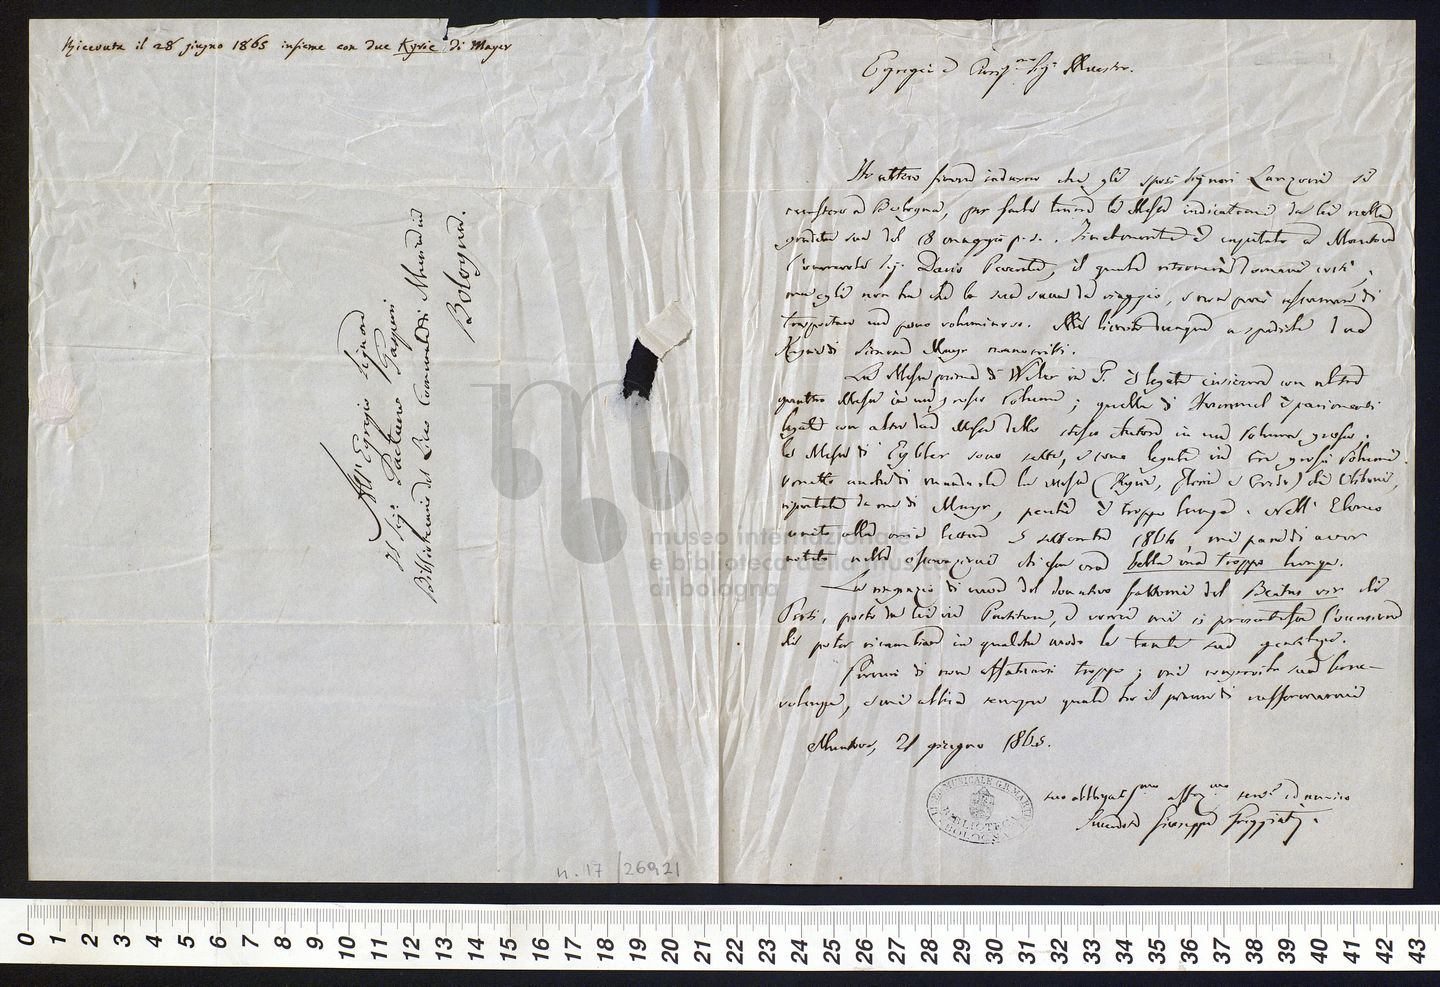 Ricevuta il 28 giugno 1865 insieme con due Kyrie di Mayer
All' Egregio Signore
Il Sig. Gaetano Gaspari
Bibliotecario del Liceo Comunale Musicale
Bologna.
Egregio e Sig. Maestro.
Ho atteso finora che gli sposi Signori Lanzoni si
a Bologna, per farle tenere la Messa indicatami da lei nella
gradita sua del 18 maggio p. s. è capitato a Mantova
Sig. Dario il quale ritornerà domani costì,
ma egli non ha che la sua sacca da viaggio, e non può di
trasportare un voluminoso. dunque a spedirle i due
Kyrie di Simone Mayr manoscritti.
La Messa prima di in F. è legata insieme con altre
quattro Messe in un grosso volume; quella di Hummel è
legata con altre due Messe dello stesso Autore in un volume grosso;
le Messe di Eybler sono sette, e sono legate in tre grossi volumi.
anche di mandarle la Messa (Kyrie, Gloria e Credo) di
di Mayr, perchè è troppo lunga. Nell' Elenco
unito alla mia lettera 5 settembre 1864, mi pare di aver
notato nelle osservazioni ch'essa era bella ma troppo lunga.
La ringrazio di cuore del donativo fattomi del Beatus vir di
Perti, posto da lei in Partitura, e vorrei mi si presentasse l'occasione
di poter ricambiare in qualche modo le tante sue gentilezze.
di non affaticarsi troppo; mi conservi la sua bene-
volenza, e mi abbia sempre quale ho il piacere di raffermarmi
Mantova, 21 giugno 1865.
suo obbligatissimo affezmo servo ed amico
Sacerdote Giuseppe Greggiati
LICEO MUSICALE G.B. MARTINI
BIBLIOTECA
BOLOGNA
n. 17 / 26921
museo internazionale
e biblioteca della musica
di bologna
0 1 2 3 4 5 6 7 8 9 10 11 12 13 14 15 16 17 18 19 20 21 22 23 24 25 26 27 28 29 30 31 32 33 34 35 36 37 38 39 40 41 42 43